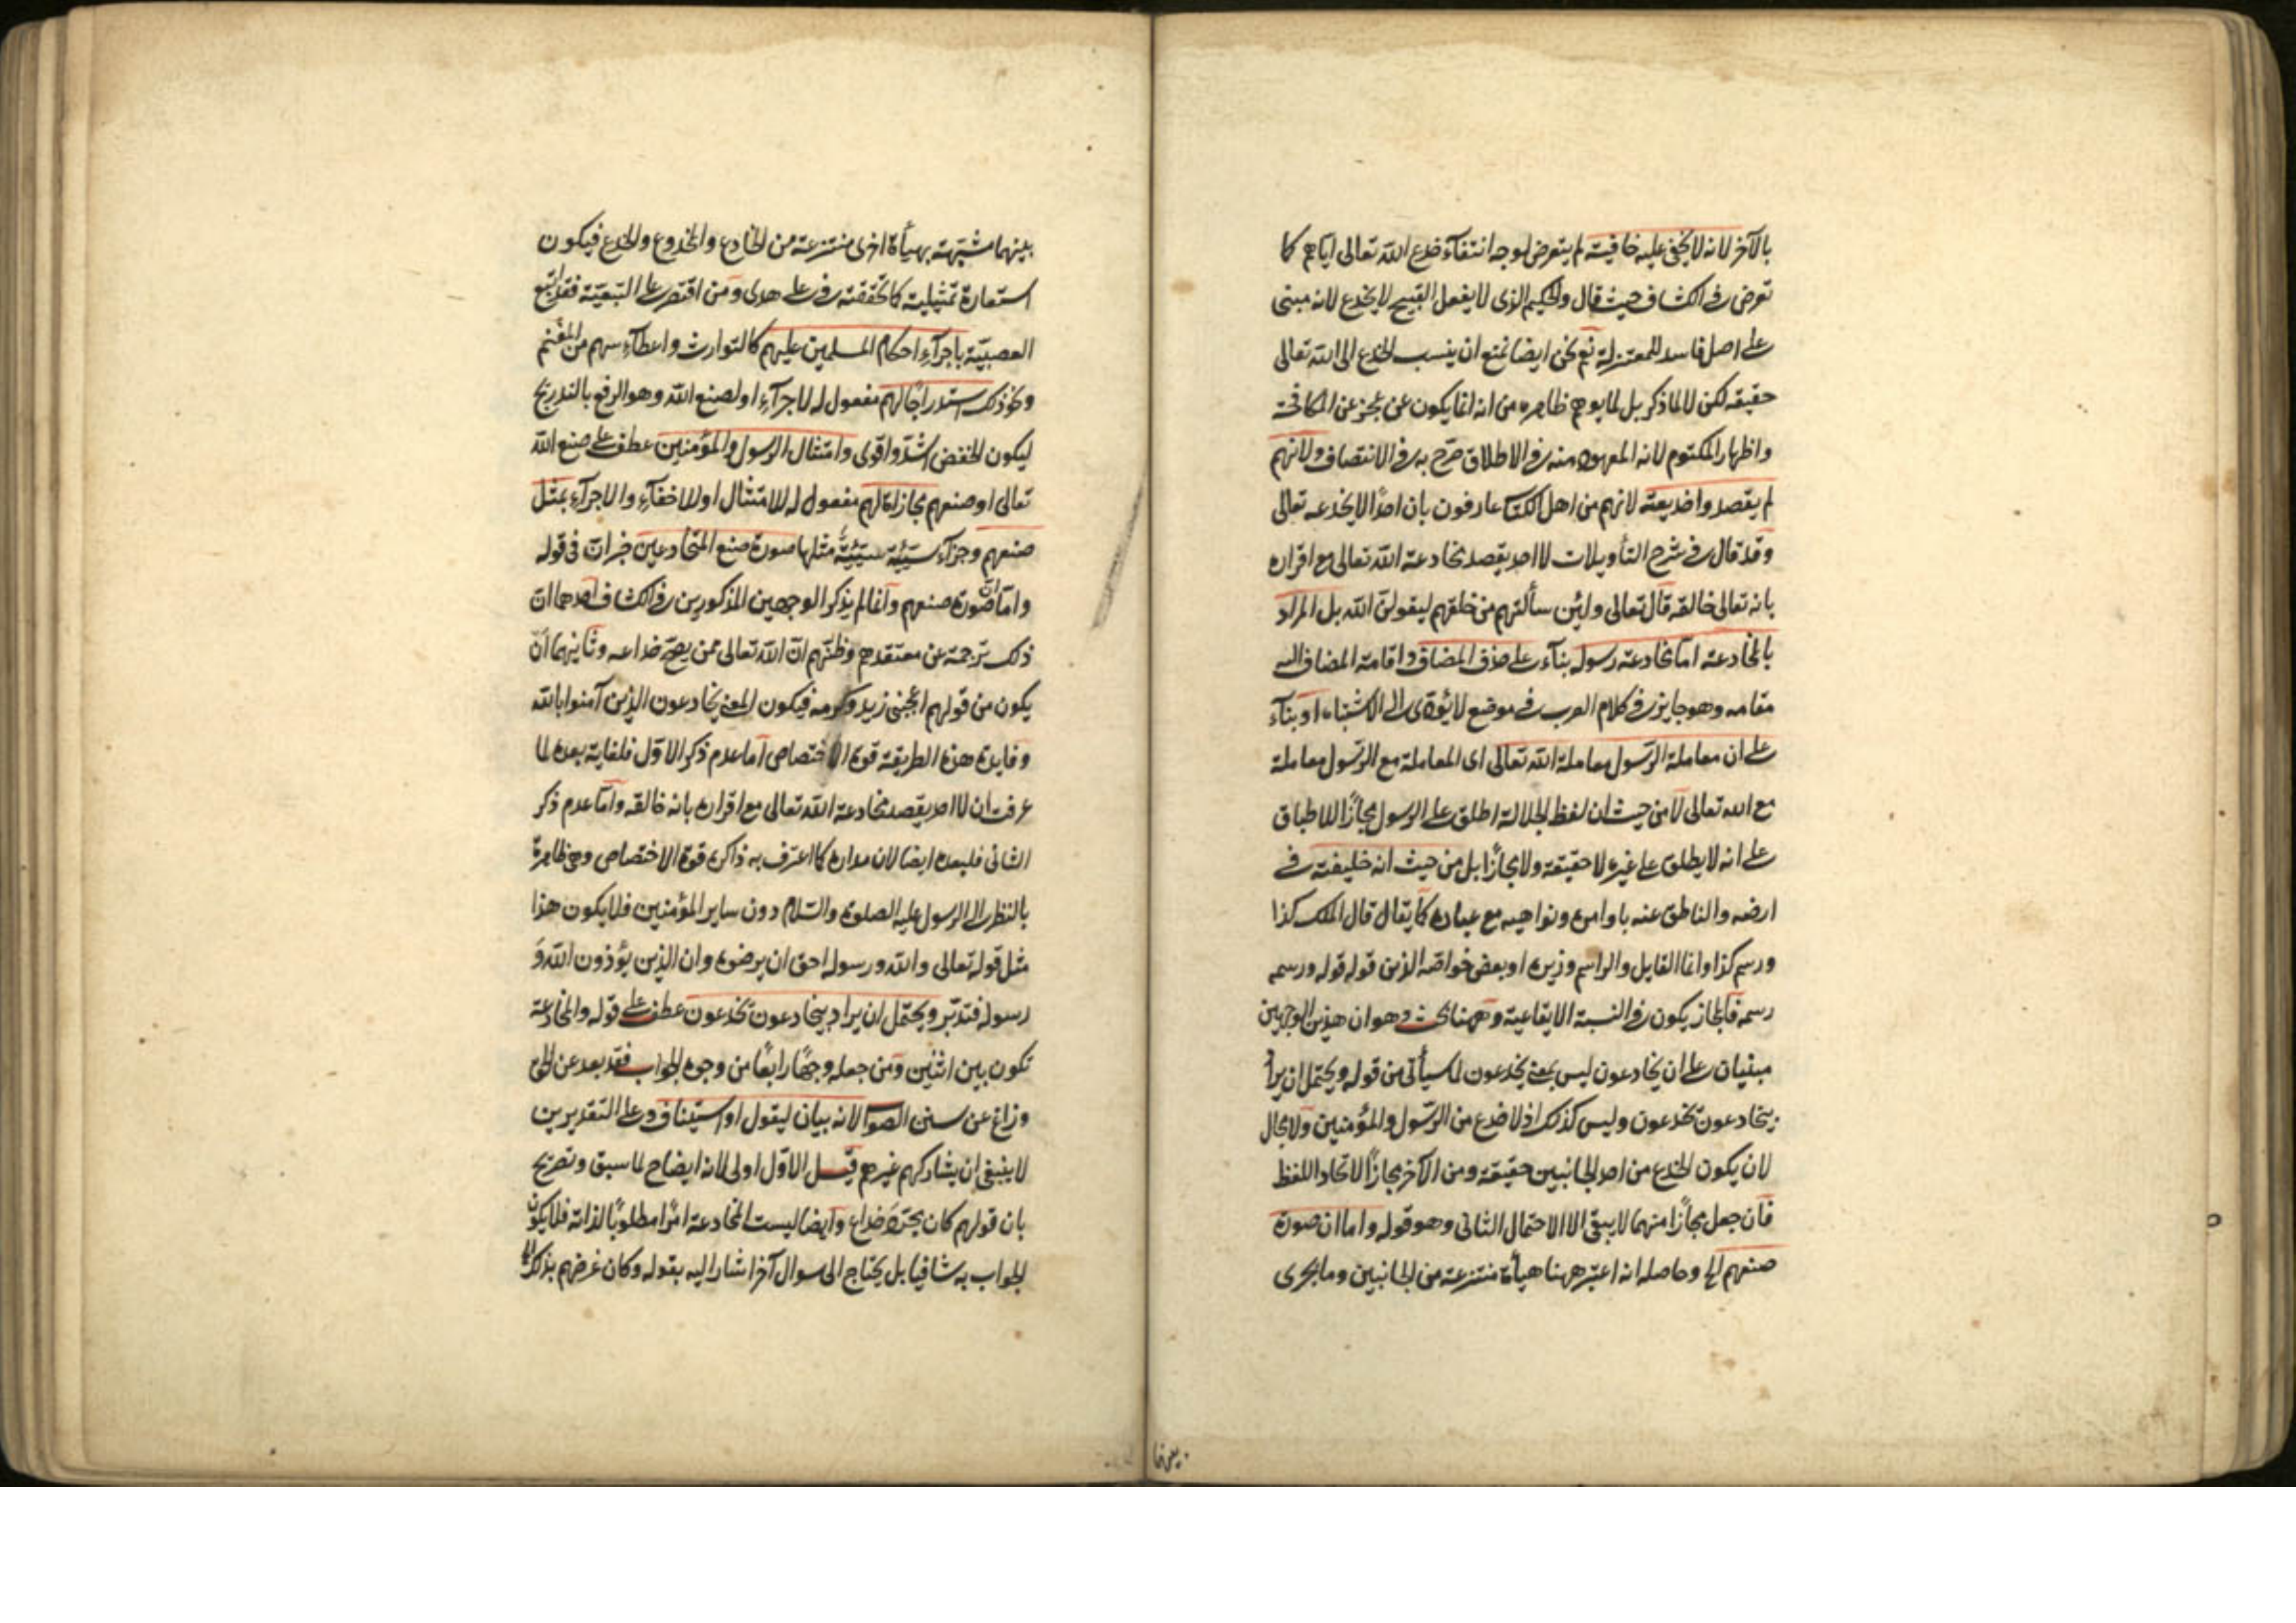 بالآخر لانه لا يخفى عليه خافية لم يتعرض لوجه انتفآء خدع الله تعالى اياهم كما
تعرض في الكشاف حيث قال والحكيم الذى لا يفعل القبيح لا يخدع لانه مبنى
على اصل فاسد للمعتزلة نعم نحن ايضا نمنع ان ينسب الخدع الى الله تعالى
حقيقة لكن لا لما ذكر بل لما يوهم ظاهره من انه انما يكون عن عجز عن المكافحة
واظهار المكتوم لانه المعهود منه في الاطلاق صرح به في الانتصاف ولانهم
لم يقصدوا خديعته لانهم من اهل الكتاب عارفون بان احدًا لا يخدعه تعالى
وقد قال في شرح التأويلات لا احد يقصد مخادعة الله تعالى مع اقراره
بانه تعالى خالقه قال تعالى ولئن سألتهم من خلقهم ليقولن الله بل المراد
بالمخادعة اما مخادعة رسوله بنآء على حذف المضاف واقامة المضاف اليه
مقامه وهو جايز في كلام العرب في موضع لا يؤدى الى الاشتباه او بنآء
على ان معاملة الرسول معاملة الله تعالى اى المعاملة مع الرسول معاملة
مع الله تعالى لا من حيث ان لفظ الجلالة اطلق على الرسول مجازًا للاطباق
على انه لا يطلق على غيره لا حقيقة ولا مجازًا بل من حيث انه خليفته في
ارضه والناطق عنه باوامره ونواهيه مع عباده كما يقال قال الملك كذا
ورسم كذا وانما القايل والراسم وزيره او بعض خواصه الذين قوله قوله ورسمه
رسمه فالمجاز يكون في النسبة الايقاعية وههنا بحث وهو ان هذين الوجهين
مبنيان على ان يخادعون ليس بمعنى يخدعون لما سيأتى من قوله ويحتمل ان يراد
بيخادعون يخدعون وليس كذلك اذ لا خدع من الرسول والمؤمنين ولا مجال
لان يكون الخدع من احد الجانبين حقيقة ومن الآخر مجازًا لاتحاد اللفظ
فان جعل مجازًا منهما لا يبقى الا الاحتمال الثانى وهو قوله واما ان صورة
صنعهم الخ وحاصله انه اعتبر ههنا هيأة منتزعة من الجانبين وما يجرى
بينهما
بينهما مشبّهة بهيأة اخرى منتزعة من الخادع والمخدوع والخدع فيكون
استعارة تمثيلية كما تحققته في على هدى ومن اقتصر على التبعية فقد اتبع
العصبيّة باجرآء احكام المسلمين عليهم كالتوارث واعطآء سهم من المغنم
ونحو ذلك استدراجًا لهم مفعول له لاجرآء او لصنع الله وهو الرفع بالتدريج
ليكون الخفض اشدّ واقوى وامتثال الرسول والمؤمنين عطف على صنع الله
تعالى او صنعهم مجازاة لهم مفعول له للامتثال او للاخفآء والاجرآء بمثل
صنعهم وجزآء سيّئة سيّئة مثلها صورة صنع المتخادعين خبر ان في قوله
واما ان صورة صنعهم وانما لم يذكر الوجهين المذكورين في الكشاف احدهما ان
ذلك ترجمة عن معتقدهم وظنّهم ان الله تعالى ممن يصح خداعه وثانيهما ان
يكون من قولهم اعجبنى زيد وكرمه فيكون المعنى يخادعون الذين آمنوا بالله
وفايدة هذه الطريقة قوة الاختصاص اما عدم ذكر الاول فلغاية بعده لما
عرفت ان لا احد يقصد مخادعة الله تعالى مع اقراره بانه خالقه واما عدم ذكر
الثانى فلبعده ايضا لان مداره كما اعترف به ذاكره قوة الاختصاص وهي ظاهرة
بالنظر الى الرسول عليه الصلوة والسّلام دون ساير المؤمنين فلا يكون هذا
مثل قوله تعالى والله ورسوله احق ان يرضوه وان الذين يؤذون الله وَ
رسوله فتدبّر ويحتمل ان يراد بيخادعون يخدعون عطف على قوله والمخادعة
تكون بين اثنين ومن جعله وجهًا رابعًا من وجوه الجواب فقد بعد عن الحق
وزاغ عن سنن الصواب لانه بيان ليقول او استيناف وعلى التقديرين
لا ينبغى ان يشاركهم غيرهم قيل الاول اولى لانه ايضاح لما سبق وتصريح
بان قولهم كان مجرّد خداع وايضا ليست المخادعة امرًا مطلوبًا لذاته فلا يكون
الجواب به شافيا بل يحتاج الى سوال آخر اشار اليه بقوله وكان غرضهم بذلك الخ